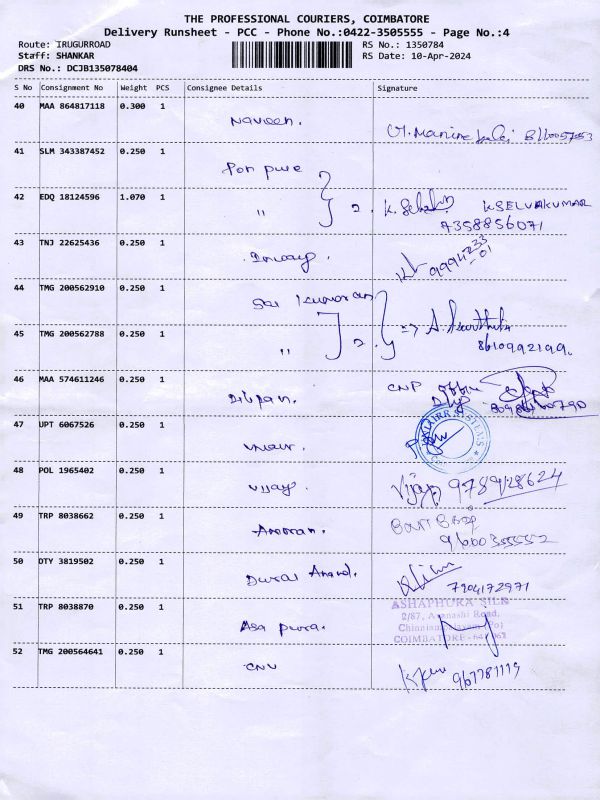 THE PROFESSIONAL COURIERS, COIMBATORE
Delivery Runsheet - PCC - Phone No.:0422-3505555 - Page No.:4
Route: IRUGURROAD
RS No.: 1350784
Staff: SHANKAR
RS Date: 10-Apr-2024
DRS No.: DCJB135078404
S No Consignment No Weight PCS Consignee Details Signature
40 MAA 864817118 0.300 1
Naveen.
41 SLM 343387452 0.250 1
Pon pure
42 EDQ 18124596 1.070 1
" 2. K SELVAKUMAR
7358856071
43 TNJ 22625436 0.250 1
44 TMG 200562910 0.250 1
Sai Kumaran
45 TMG 200562788 0.250 1
" 2. => A.
8610992199.
46 MAA 574611246 0.250 1
CNP
47 UPT 6067526 0.250 1
48 POL 1965402 0.250 1
Vijay Vijay 9789128624
49 TRP 8038662 0.250 1
50 DTY 3819502 0.250 1
Durai Anand.
7904172971
51 TRP 8038870 0.250 1
Asa pura.
ASHAPHURA SILK
2/87, Road,
COIMBATORE
52 TMG 200564641 0.250 1